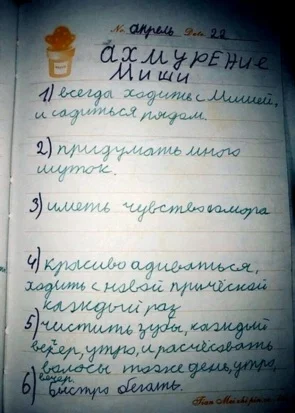 No. апрель Date 22
АХМУРЕНИЕ
Миши
1) всегда ходить с Мишей,
и садиться рядом.
2) придумать много
шуток.
3) иметь чувство юмора
4) красиво адиваться,
ходить с новой причёской
каждый раз
5) чистить зубы, каждый
вечер, утро, и расчёсовать
волосы тоже день, утро,
вечер.
6) быстро бегать.